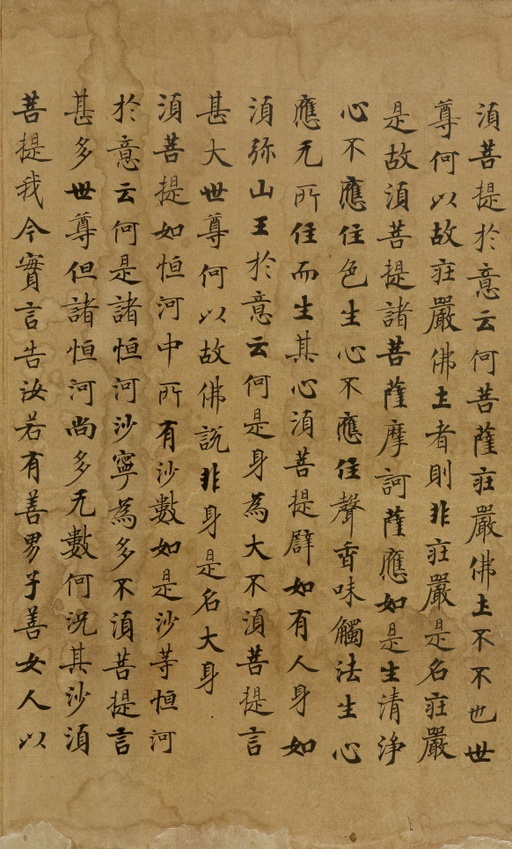 湏菩提於意云何菩薩莊嚴佛土不不也世
尊何以故莊嚴佛土者則非莊嚴是名莊嚴
是故湏菩提諸菩薩摩訶薩應如是生清淨
心不應住色生心不應住聲香味觸法生心
應无所住而生其心湏菩提辟如有人身如
湏弥山王於意云何是身為大不湏菩提言
甚大世尊何以故佛說非身是名大身
湏菩提如恒河中所有沙數如是沙等恒河
於意云何是諸恒河沙寧為多不湏菩提言
甚多世尊但諸恒河尚多无數何況其沙湏
菩提我今實言告汝若有善男子善女人以